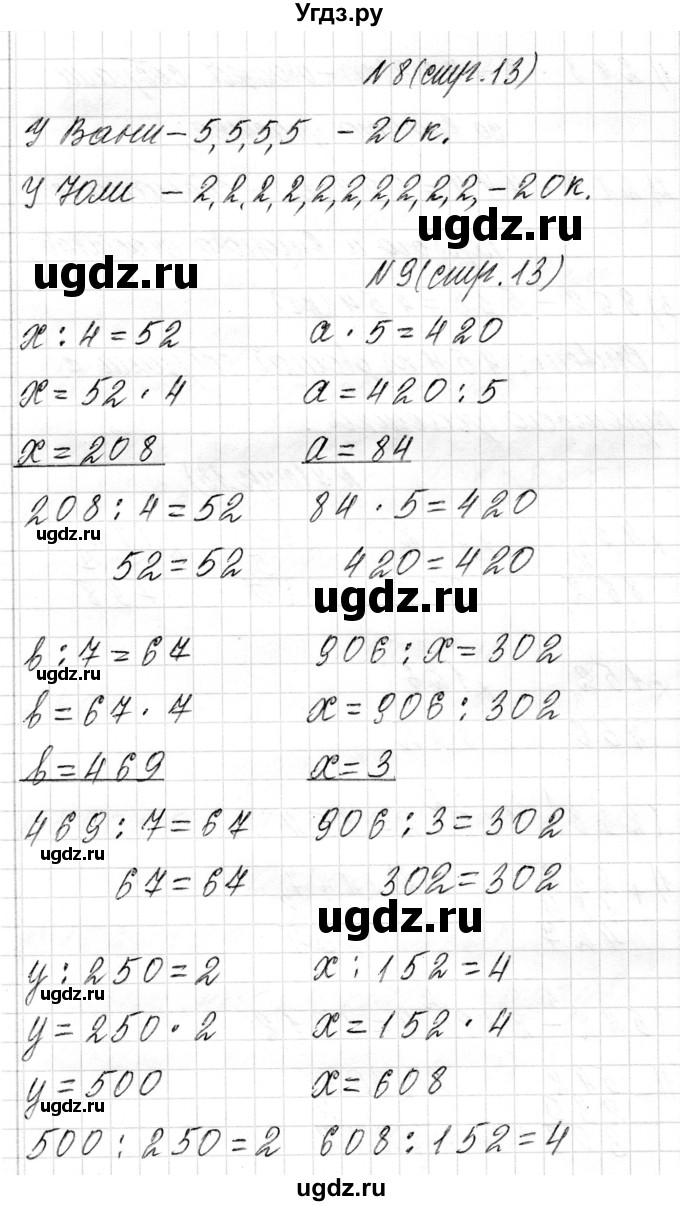 Угдз.ру
N8(стр.13)
У Вани - 5,5,5,5 - 20 к.
У Юли - 2,2,2,2,2,2,2,2,2,2, - 20 к.
ugdz.ru
ugdz.ru
N9(стр.13)
x : 4 = 52 a · 5 = 420
x = 52 · 4 a = 420 : 5
x = 208 a = 84
208 : 4 = 52 84 · 5 = 420
ugdz.ru
52 = 52 420 = 420
ugdz.ru
b : 7 = 67 906 : x = 302
ugdz.ru
b = 67 · 7 x = 906 : 302
b = 469 x = 3
469 : 7 = 67 906 : 3 = 302
ugdz.ru
67 = 67 302 = 302
ugdz.ru
y : 250 = 2 x : 152 = 4
ugdz.ru
y = 250 · 2 x = 152 · 4
y = 500 x = 608
ugdz.ru
500 : 250 = 2 608 : 152 = 4
ugdz.ru